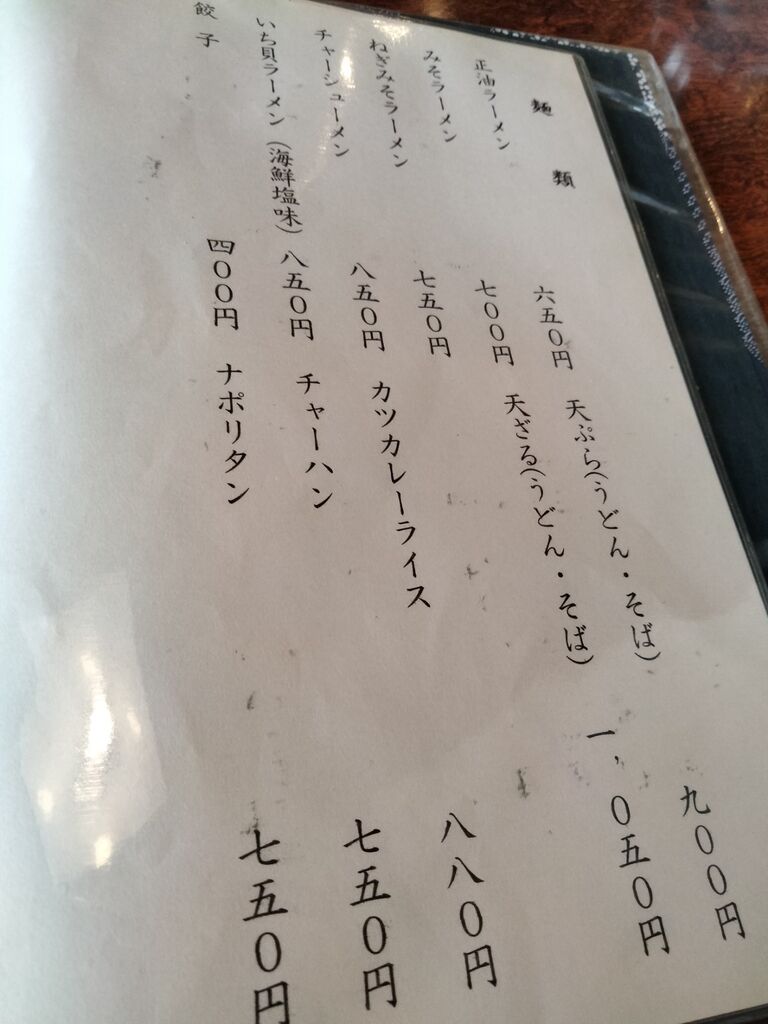 麺類
正油ラーメン 六五〇円
みそラーメン 七〇〇円
ねぎみそラーメン 七五〇円
チャーシューメン 八五〇円
いち貝ラーメン(海鮮塩味) 八五〇円
餃子 四〇〇円
天ぷら(うどん・そば) 九〇〇円
天ざる(うどん・そば) 一,〇五〇円
カツカレーライス 八八〇円
チャーハン 七五〇円
ナポリタン 七五〇円